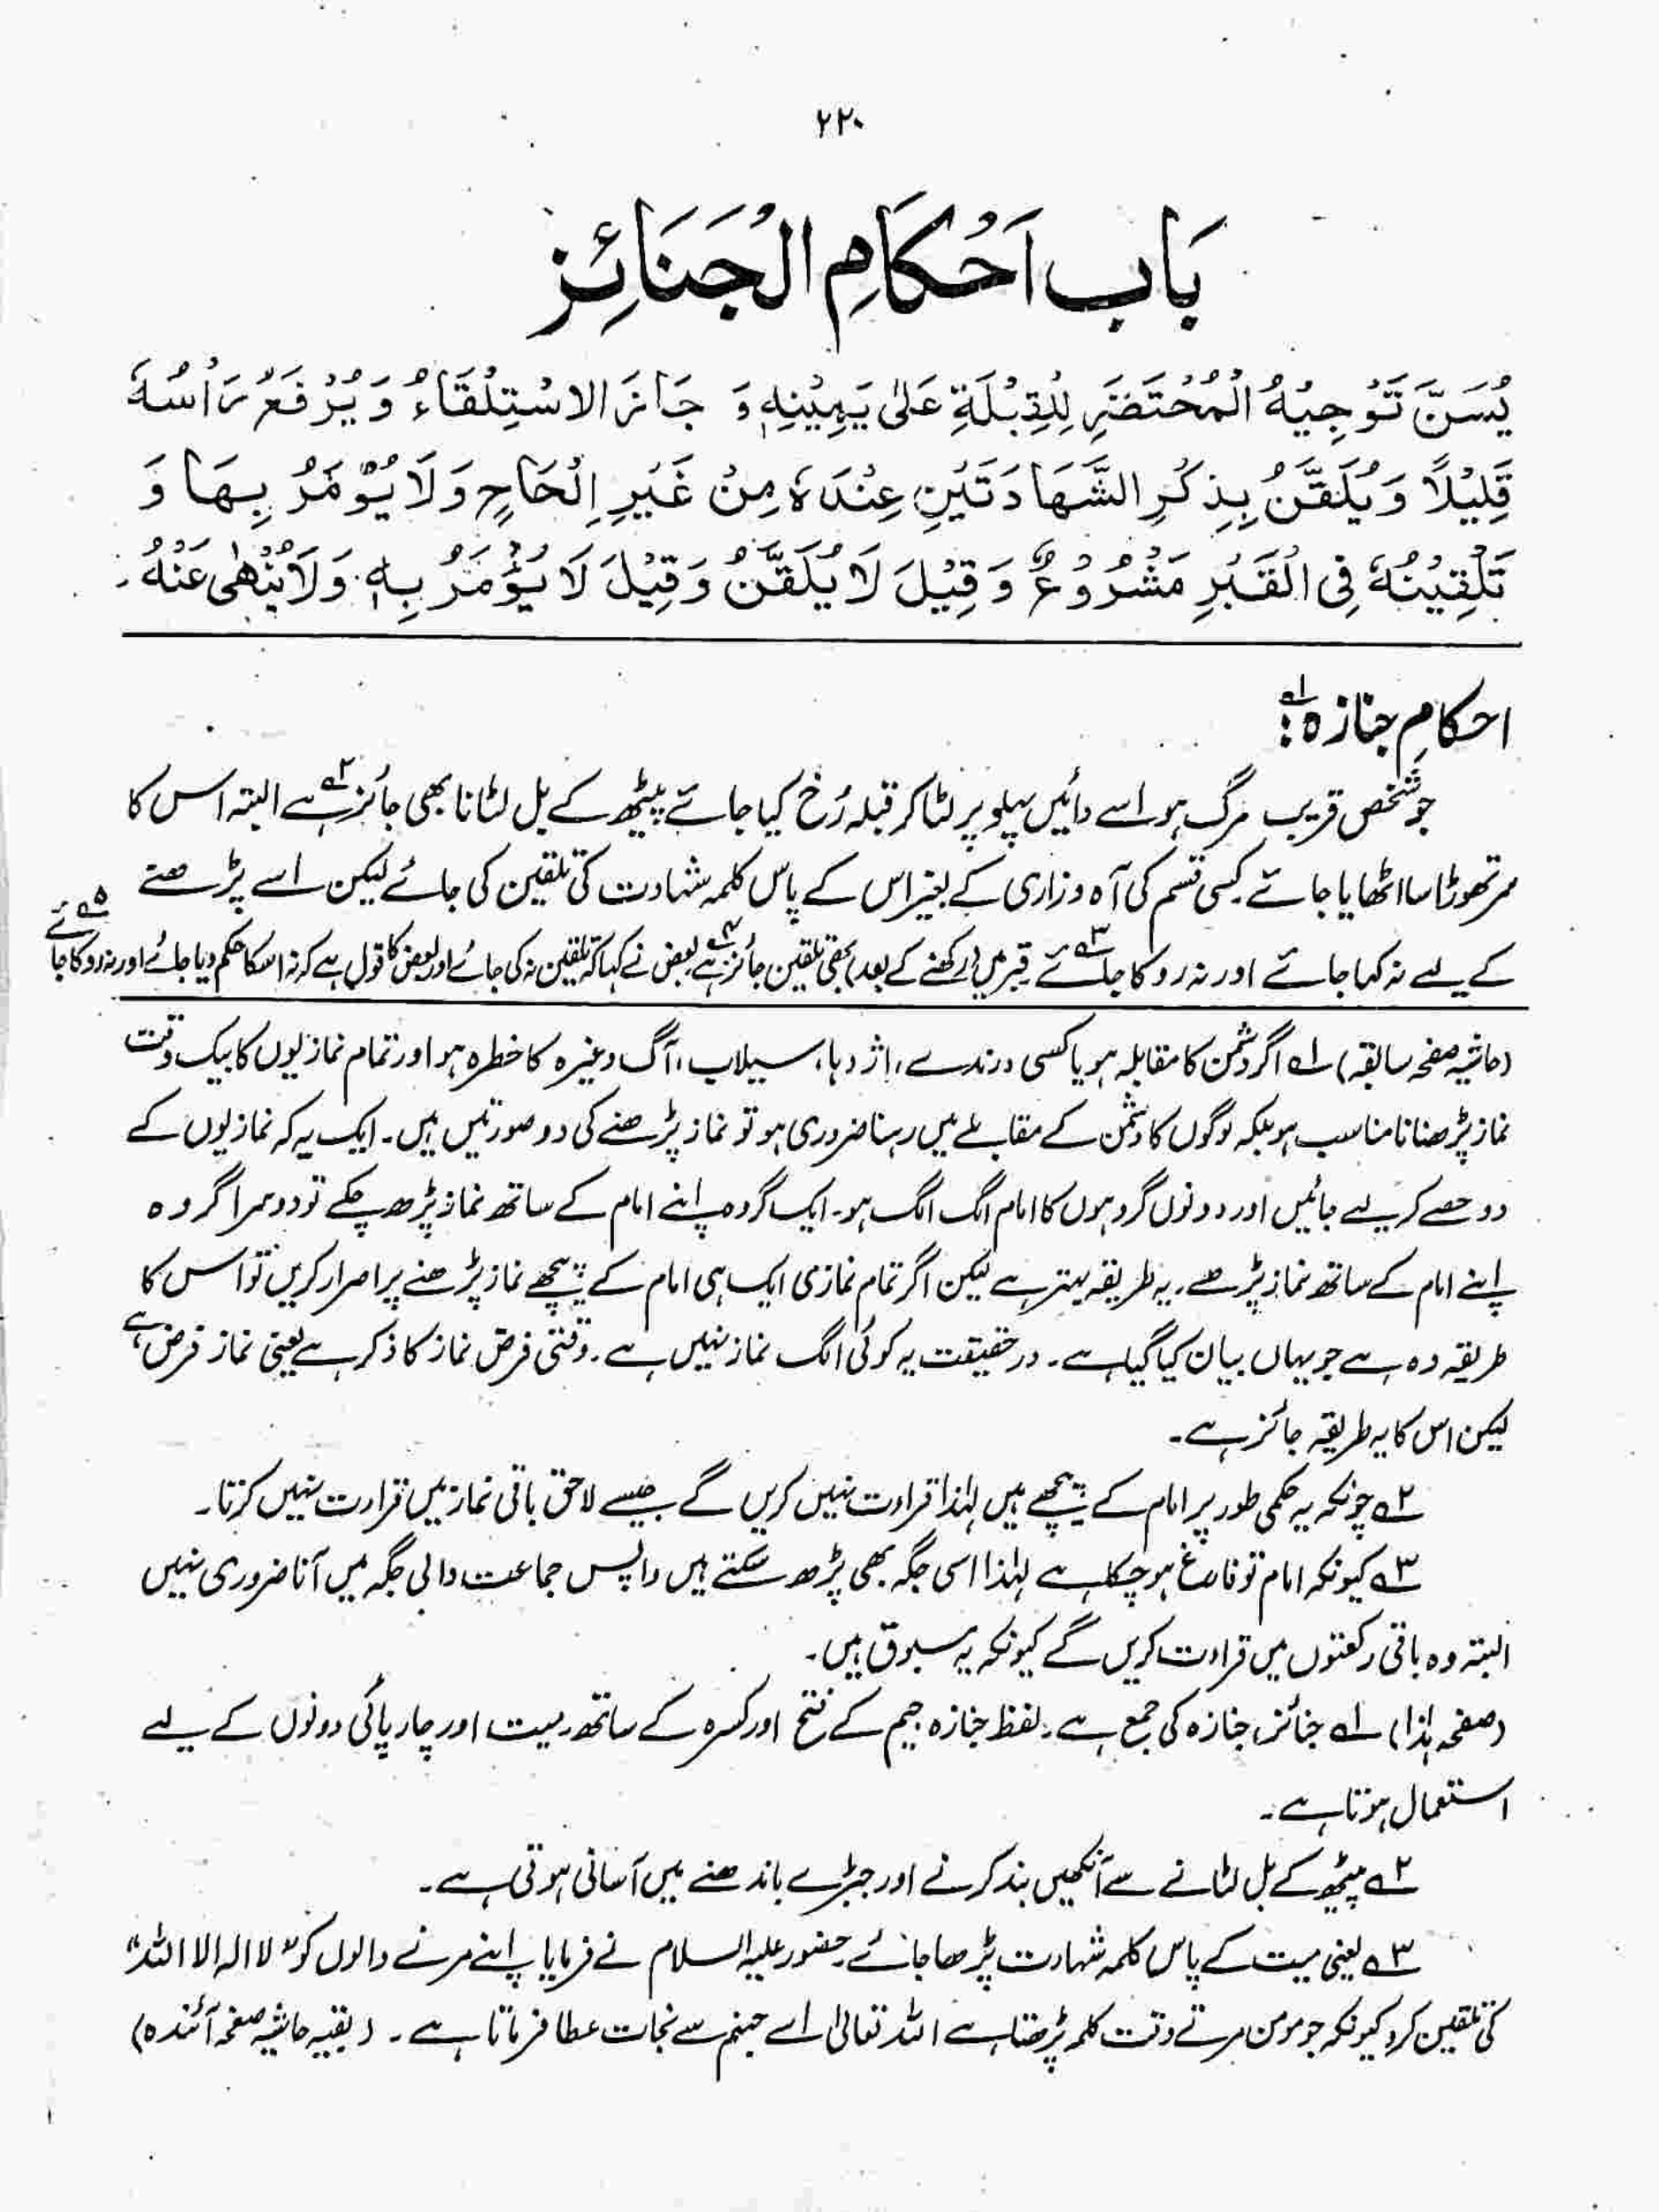 ۲۲۰
بَاب اَحُكَامِ الْجَنَائِز
يُسَنَّ تَوْجِيْهُ الْمُحْتَضَرِ لِلْقِبْلَةِ عَلٰى يَمِيْنِهٖ وَ جَازَ الاسْتِلْقَاءُ وَ يُرْفَعُ رَأْسُهٗ
قَلِيْلًا وَ يُلَقَّنُ بِذِكْرِ الشَّهَادَتَيْنِ عِنْدَهٗ مِنْ غَيْرِ اِلْحَاحٍ وَلَا يُؤْمَرُ بِهَا وَ
تَلْقِيْنُهٗ فِى الْقَبْرِ مَشْرُوْعٌ وَ قِيْلَ لَا يُلَقَّنُ وَ قِيْلَ لَا يُؤْمَرُ بِهٖ وَلَا يُنْهٰى عَنْهُ۔
احکامِ جنازہ۱ :
جو شخص قریب مرگ ہو اسے دائیں پہلو پر لٹا کر قبلہ رُخ کیا جائے پیٹھ کے بل لٹانا بھی جائز۲ ہے البتہ اس کا
سر تھوڑا سا اٹھایا جائے۔ کسی قسم کی آہ و زاری کے بغیر اس کے پاس کلمہ شہادت کی تلقین کی جائے لیکن اسے پڑھنے
کے لیے نہ کہا جائے اور نہ روکا جائے۳ قبر میں (رکھنے کے بعد) بھی تلقین جائز۴ ہے بعض نے کہا کہ تلقین نہ کی جائے اور بعض کا قول ہے کہ نہ اسکا حکم دیا جائے اور نہ روکا جائے۵
(حاشیہ صفحہ سابقہ) ۱ اگر دشمن کا مقابلہ ہو یا کسی درندے، اژدہا، سیلاب، آگ وغیرہ کا خطرہ ہو اور تمام نمازیوں کا بیک وقت
نماز پڑھنا نامناسب ہو بلکہ لوگوں کا دشمن کے مقابلے میں رہنا ضروری ہو تو نماز پڑھنے کی دو صورتیں ہیں۔ ایک یہ کہ نمازیوں کے
دو حصے کر لیے جائیں اور دونوں گروہوں کا امام الگ الگ ہو۔ ایک گروہ اپنے امام کے ساتھ نماز پڑھ چکے تو دوسرا گروہ
اپنے امام کے ساتھ نماز پڑھے۔ یہ طریقہ بہتر ہے لیکن اگر تمام نمازی ایک ہی امام کے پیچھے نماز پڑھنے پر اصرار کریں تو اس کا
طریقہ وہ ہے جو یہاں بیان کیا گیا ہے۔ در حقیقت یہ کوئی الگ نماز نہیں ہے۔ وقتی فرض نماز کا ذکر ہے یعنی نماز فرض ہے
لیکن اس کا یہ طریقہ جائز ہے۔
۲ چونکہ یہ حکمی طور پر امام کے پیچھے ہیں لہٰذا قراءت نہیں کریں گے جیسے لاحق باقی نماز میں قراءت نہیں کرتا۔
۳ کیونکہ امام تو فارغ ہو چکا ہے لہٰذا اسی جگہ بھی پڑھ سکتے ہیں واپس جماعت والی جگہ میں آنا ضروری نہیں
البتہ وہ باقی رکعتوں میں قراءت کریں گے کیونکہ یہ مسبوق ہیں۔
(صفحہ ہٰذا) ۱ جنائز، جنازہ کی جمع ہے۔ لفظ جنازہ جیم کے فتح اور کسرہ کے ساتھ میت اور چارپائی دونوں کے لیے
استعمال ہوتا ہے۔
۲ پیٹھ کے بل لٹانے سے آنکھیں بند کرنے اور جبڑے باندھنے میں آسانی ہوتی ہے۔
۳ یعنی میت کے پاس کلمہ شہادت پڑھا جائے۔ حضور علیہ السلام نے فرمایا اپنے مرنے والوں کو "لا الہ الا اللہ"
کی تلقین کرو کیونکہ جو مومن مرتے وقت کلمہ پڑھتا ہے اللہ تعالیٰ اسے جہنم سے نجات عطا فرماتا ہے۔ (بقیہ حاشیہ صفحہ آئندہ)